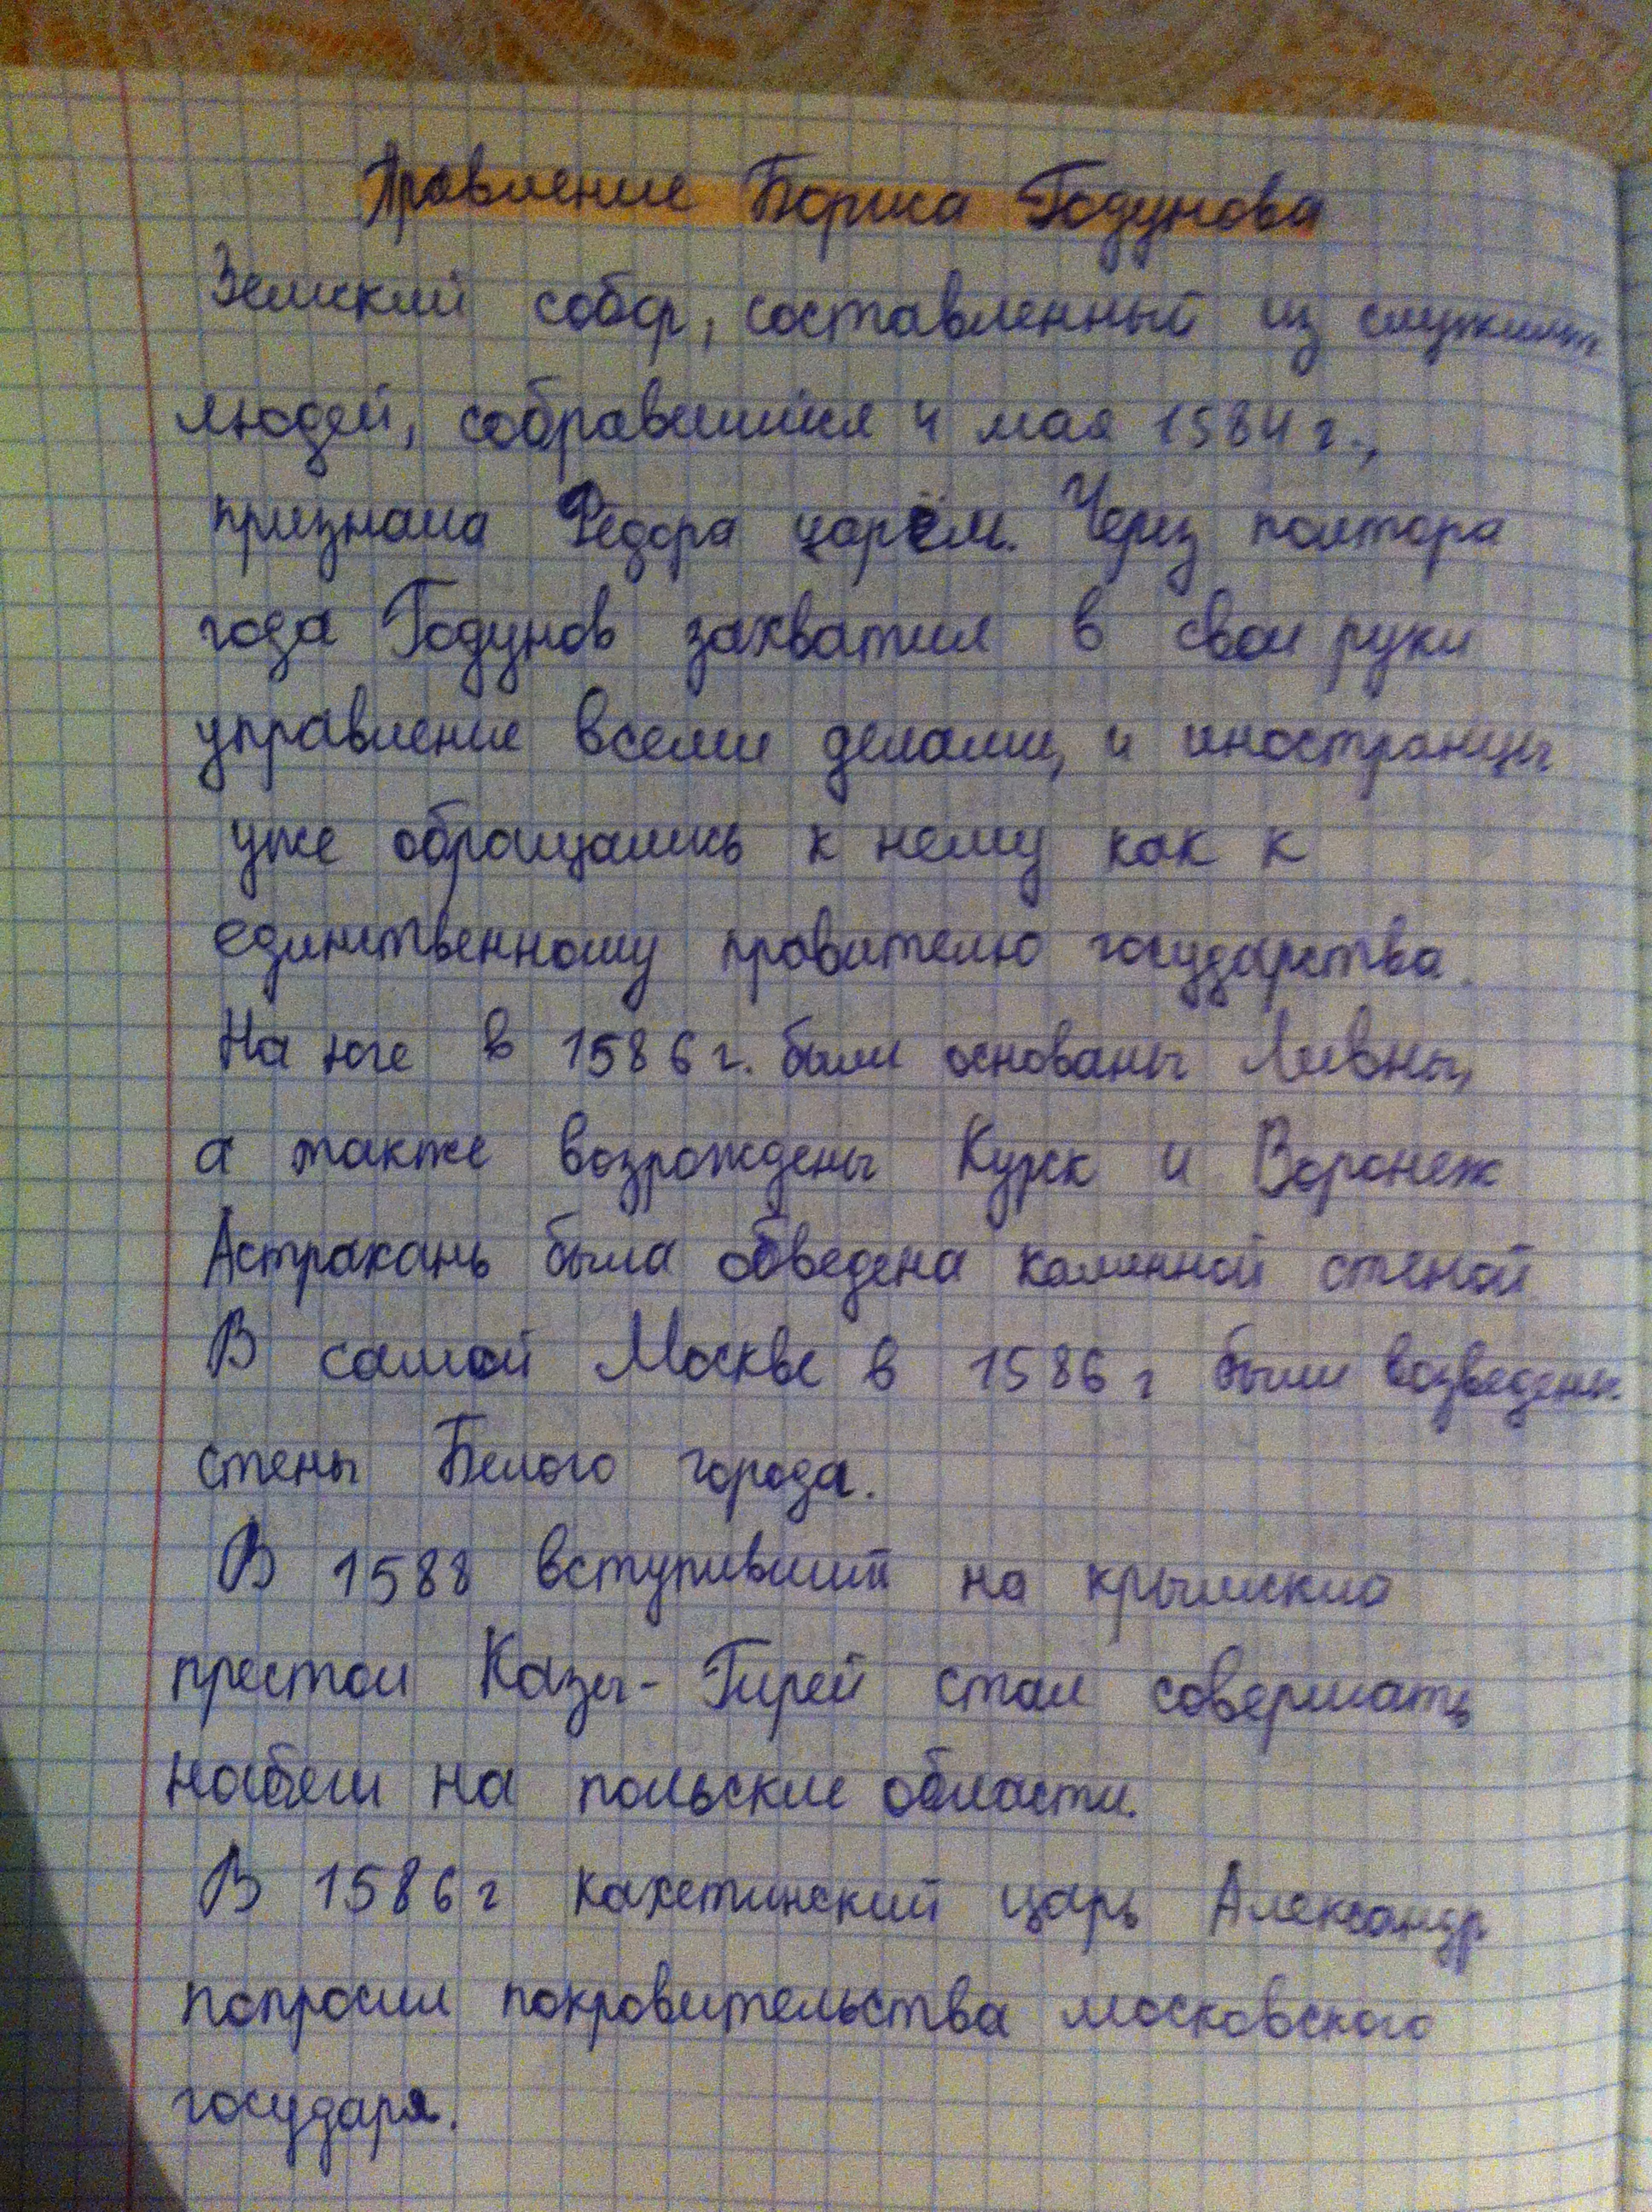 Правление Бориса Годунова
Земский собор, составленный из служилых
людей, собравшийся 4 мая 1584 г.,
признала Федора царём. Через полтора
года Годунов захватил в свои руки
управление всеми делами, и иностранцы
уже обращались к нему как к
единственному правителю государства.
На юге в 1586 г. были основаны Ливны,
а также возрождены Курск и Воронеж
Астрахань была обведена каменной стеной
В самой Москве в 1586 г были возведены
стены Белого города.
В 1588 вступивший на крымский
престол Казы-Гирей стал совершать
набеги на польские области.
В 1586 г кахетинский царь Александр
попросил покровительства московского
государя.